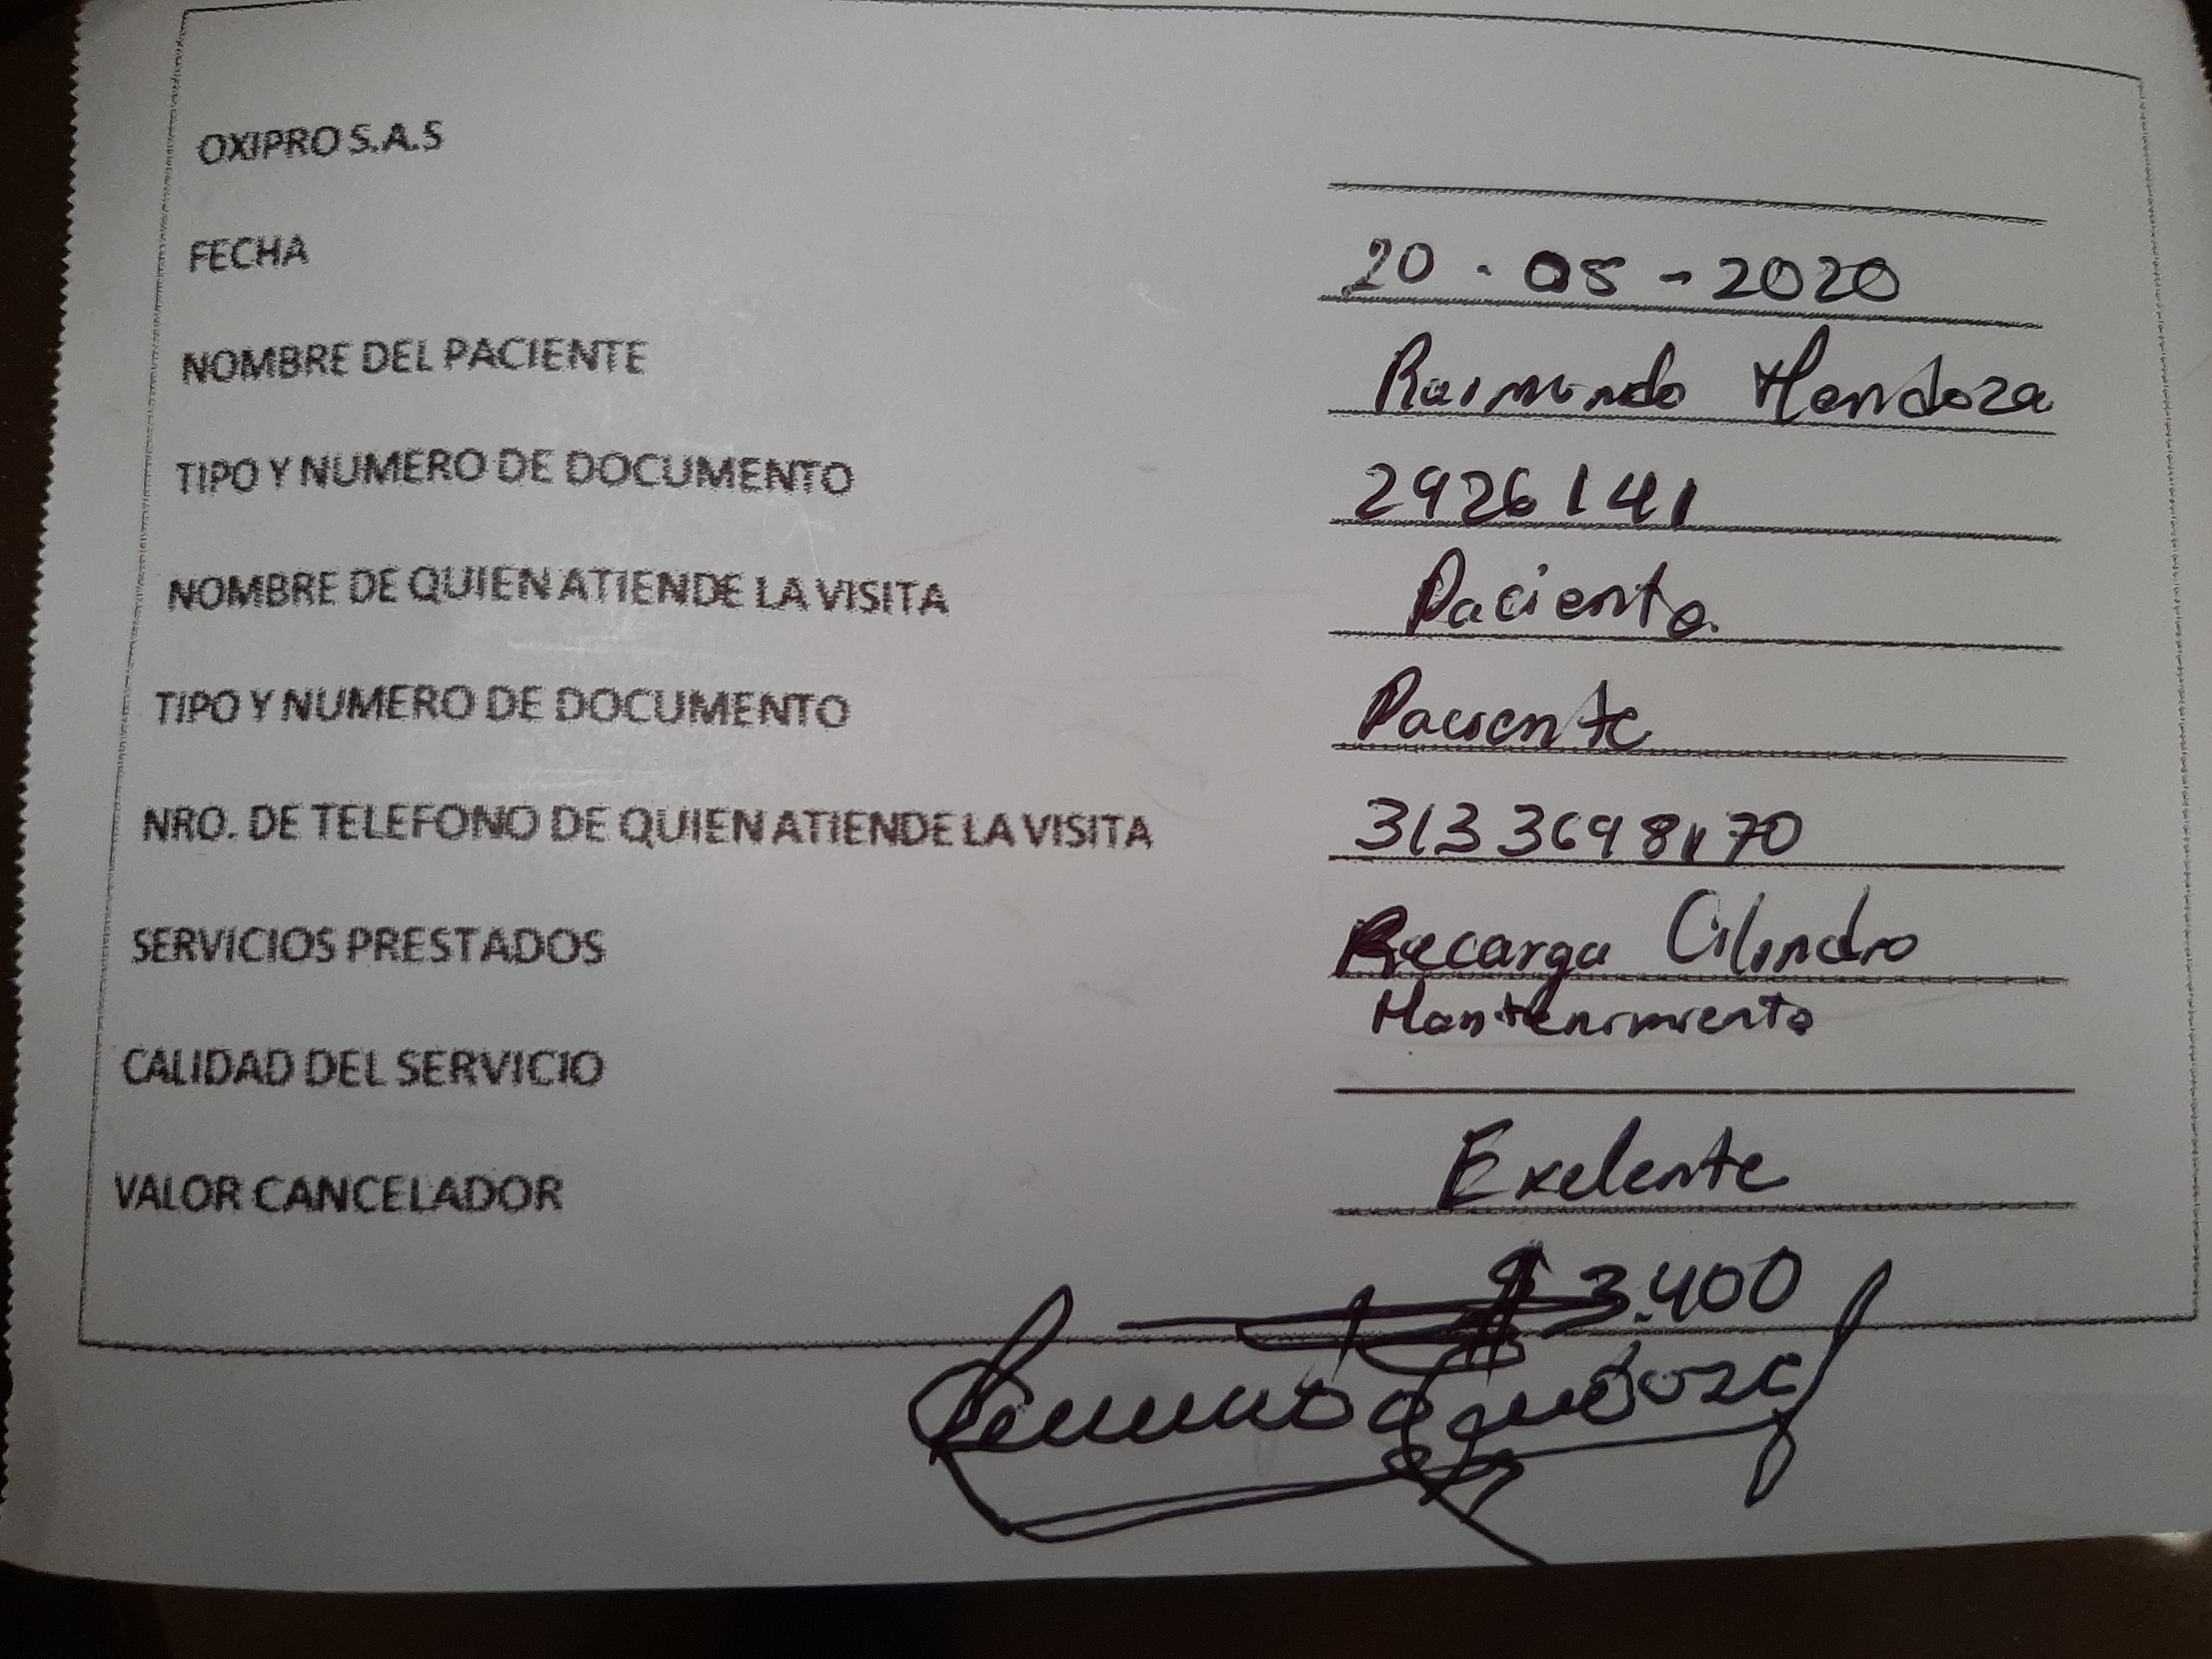 OXIPRO S.A.S
FECHA 20 - 05 - 2020
NOMBRE DEL PACIENTE Raimundo Mendoza
TIPO Y NUMERO DE DOCUMENTO 2926141
NOMBRE DE QUIEN ATIENDE LA VISITA Paciente
TIPO Y NUMERO DE DOCUMENTO Paciente
NRO. DE TELEFONO DE QUIEN ATIENDE LA VISITA
SERVICIOS PRESTADOS Recarga Cilindro
Mantenimiento
CALIDAD DEL SERVICIO
Exelente
VALOR CANCELADOR
$ 3.400